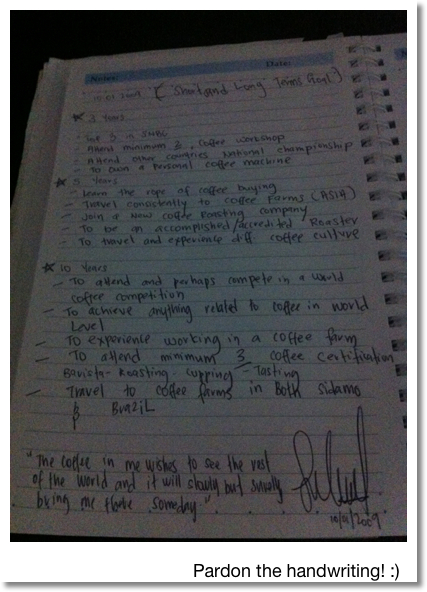 Notes: Date:
10.01.2009 ( Short and Long Terms Goal )
★ 3 Years
- Top 3 in SNBC
- Attend minimum 3, coffee workshop
- Attend other countries National championship
- To own a personal coffee machine
★ 5 Years
- Learn the rope of coffee buying
- Travel consistently to coffee farms (ASIA)
- Join a New coffee Roasting company
- To be an accomplished/accredited Roaster
- To travel and experience diff coffee culture
★ 10 Years
- To attend and perhaps compete in a world
coffee competition
- To achieve anything related to coffee in world
Level
- To experience working in a coffee farm
- To attend minimum 3 coffee certification
Barista- Roasting- cupping - Tasting
- Travel to coffee farms in Both Sidamo
& BraziL
"The coffee in me wishes to see the rest
of the world and it will slowly but surely
bring me there someday."
10/01/2009
Pardon the handwriting! :)